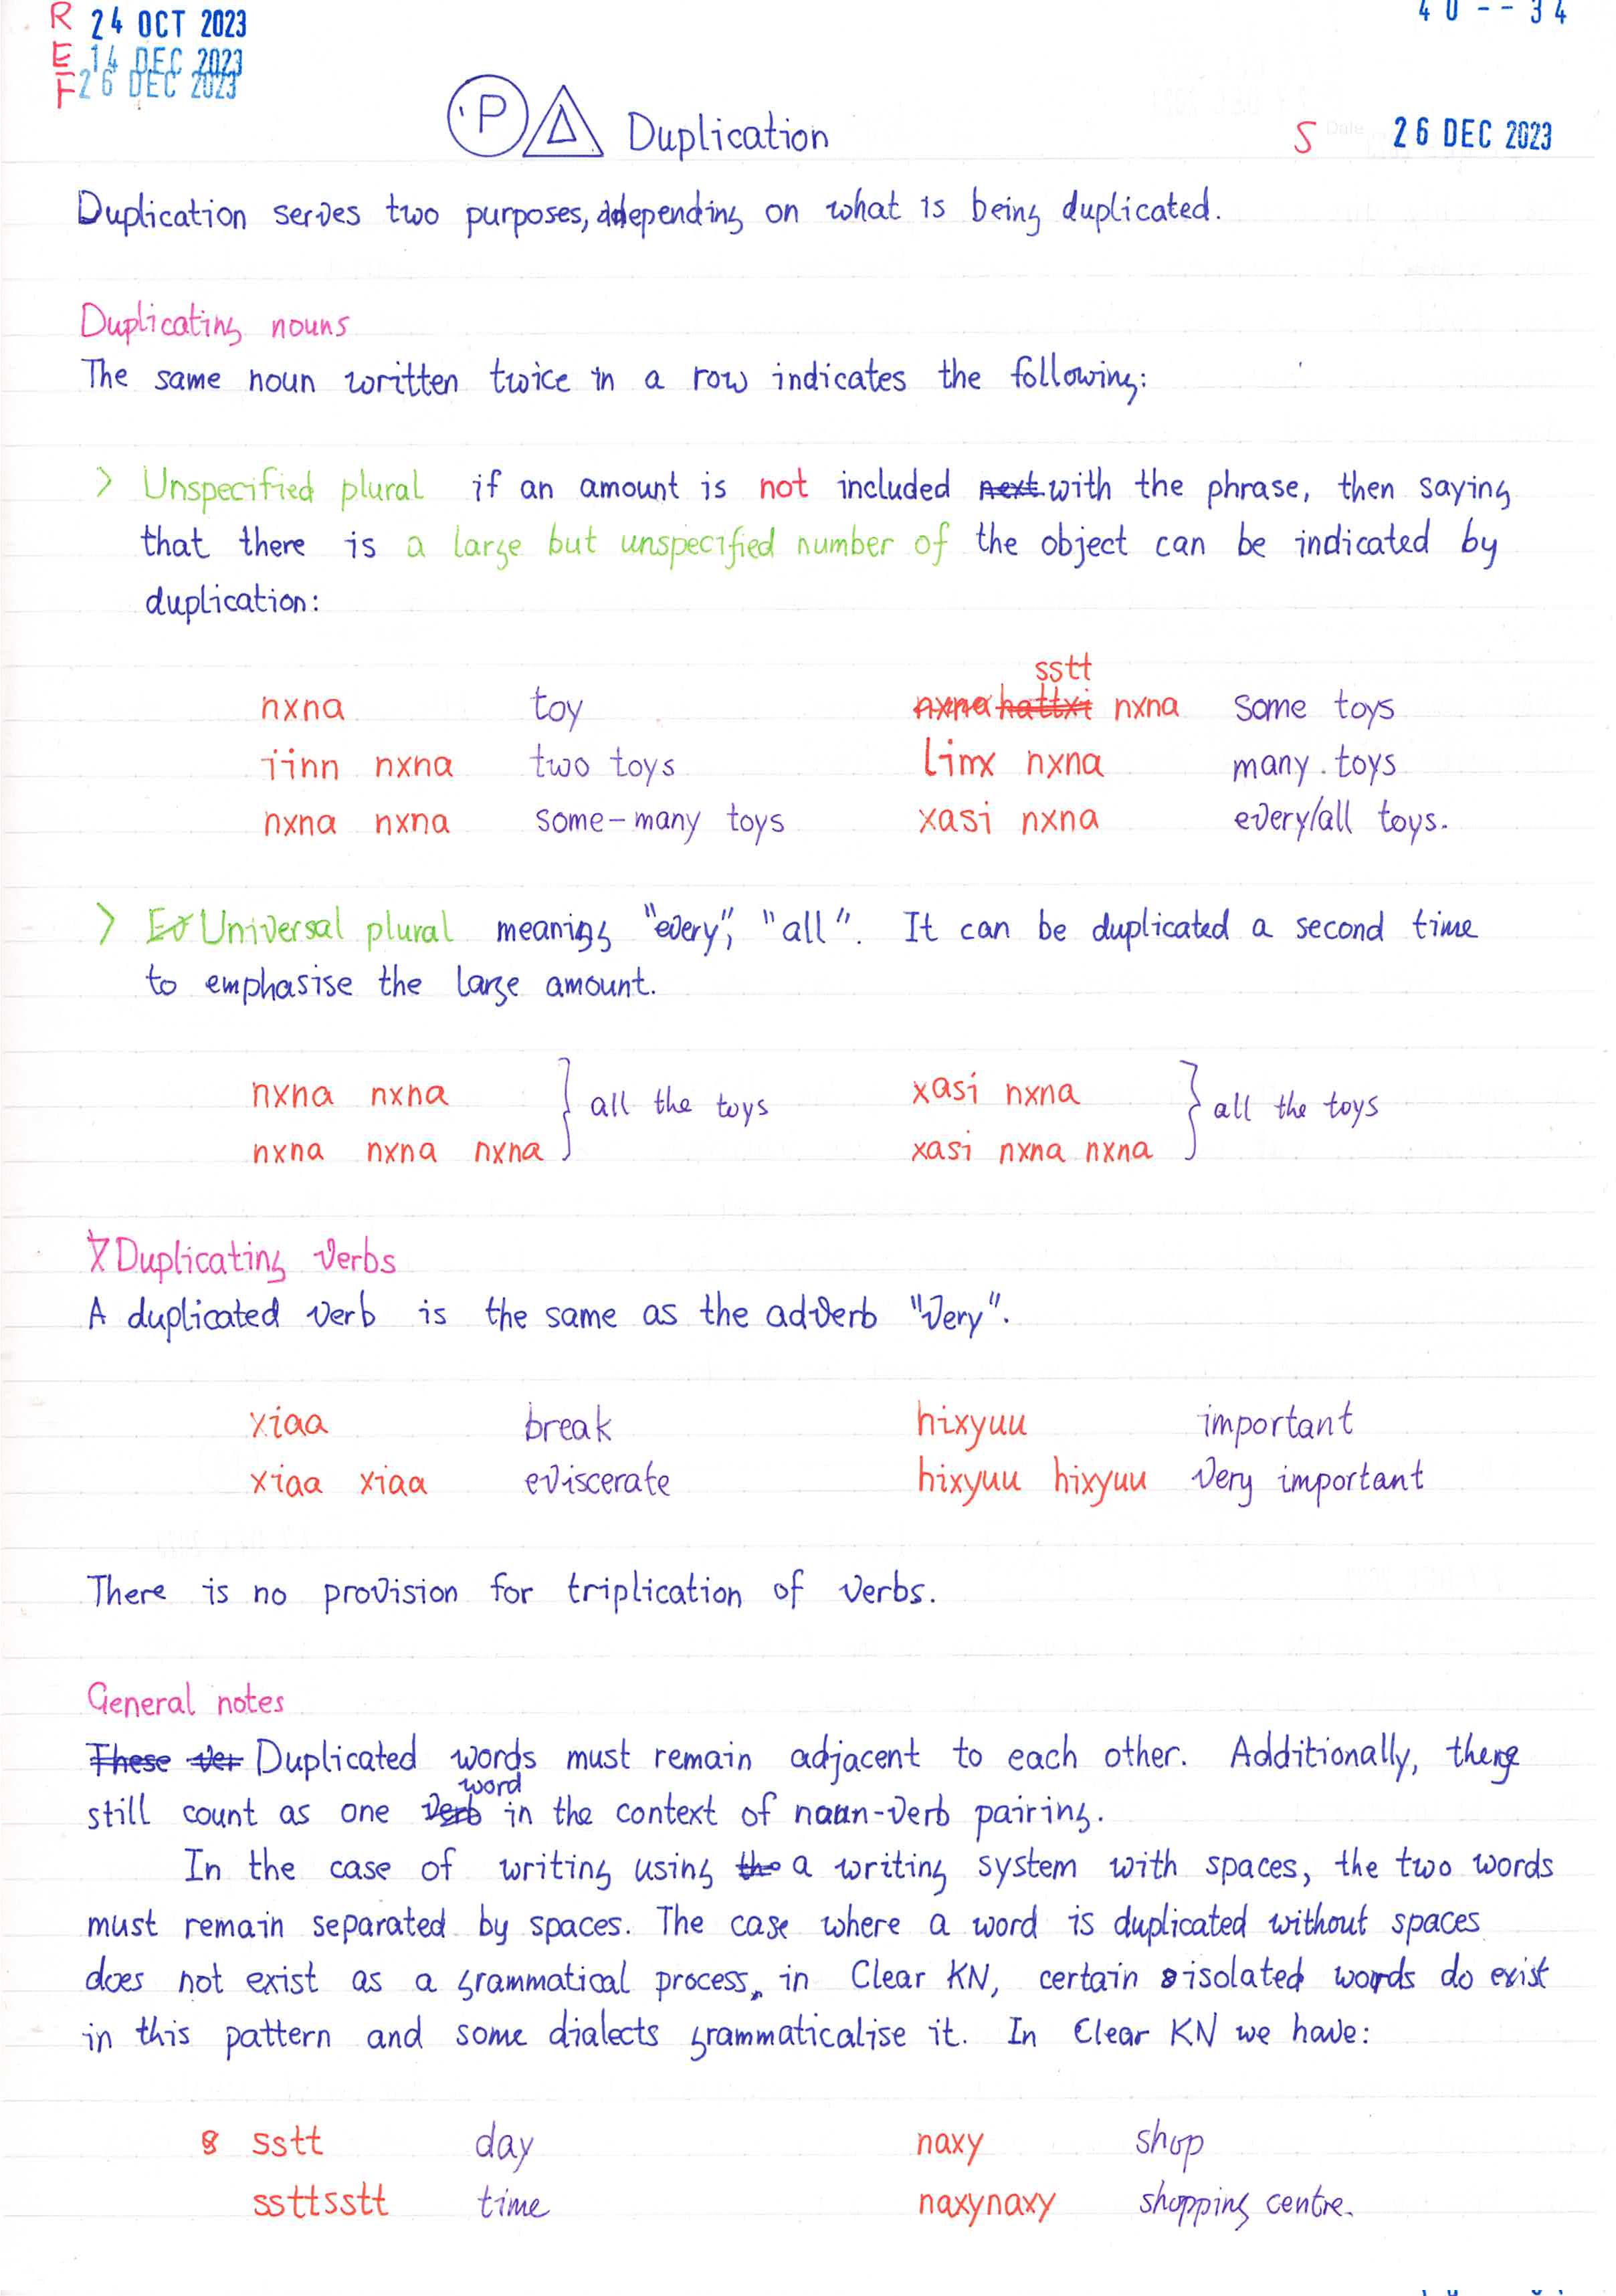 R 24 OCT 2023
E 14 DEC 2023
F 26 DEC 2023
40 -- 34
P Δ Duplication
S Date 26 DEC 2023
Duplication serves two purposes, depending on what is being duplicated.
Duplicating nouns
The same noun written twice in a row indicates the following:
> Unspecified plural if an amount is not included next with the phrase, then saying
that there is a large but unspecified number of the object can be indicated by
duplication:
sstt
nxna toy nxna hattxi nxna some toys
iinn nxna two toys limx nxna many toys
nxna nxna some-many toys xasi nxna every/all toys.
> Ex Universal plural meanigs "every", "all". It can be duplicated a second time
to emphasise the large amount.
nxna nxna } all the toys xasi nxna } all the toys
nxna nxna nxna xasi nxna nxna
Duplicating verbs
A duplicated verb is the same as the adverb "very".
xiaa break hixyuu important
xiaa xiaa eviscerate hixyuu hixyuu very important
There is no provision for triplication of verbs.
General notes
These ver Duplicated words must remain adjacent to each other. Additionally, there
word
still count as one verb in the context of noun-verb pairing.
In the case of writing using the a writing system with spaces, the two words
must remain separated by spaces. The case where a word is duplicated without spaces
does not exist as a grammatical process, in Clear KN, certain isolated words do exist
in this pattern and some dialects grammaticalise it. In Clear KN we have:
8 sstt day naxy shop
ssttsstt time naxynaxy shopping centre.